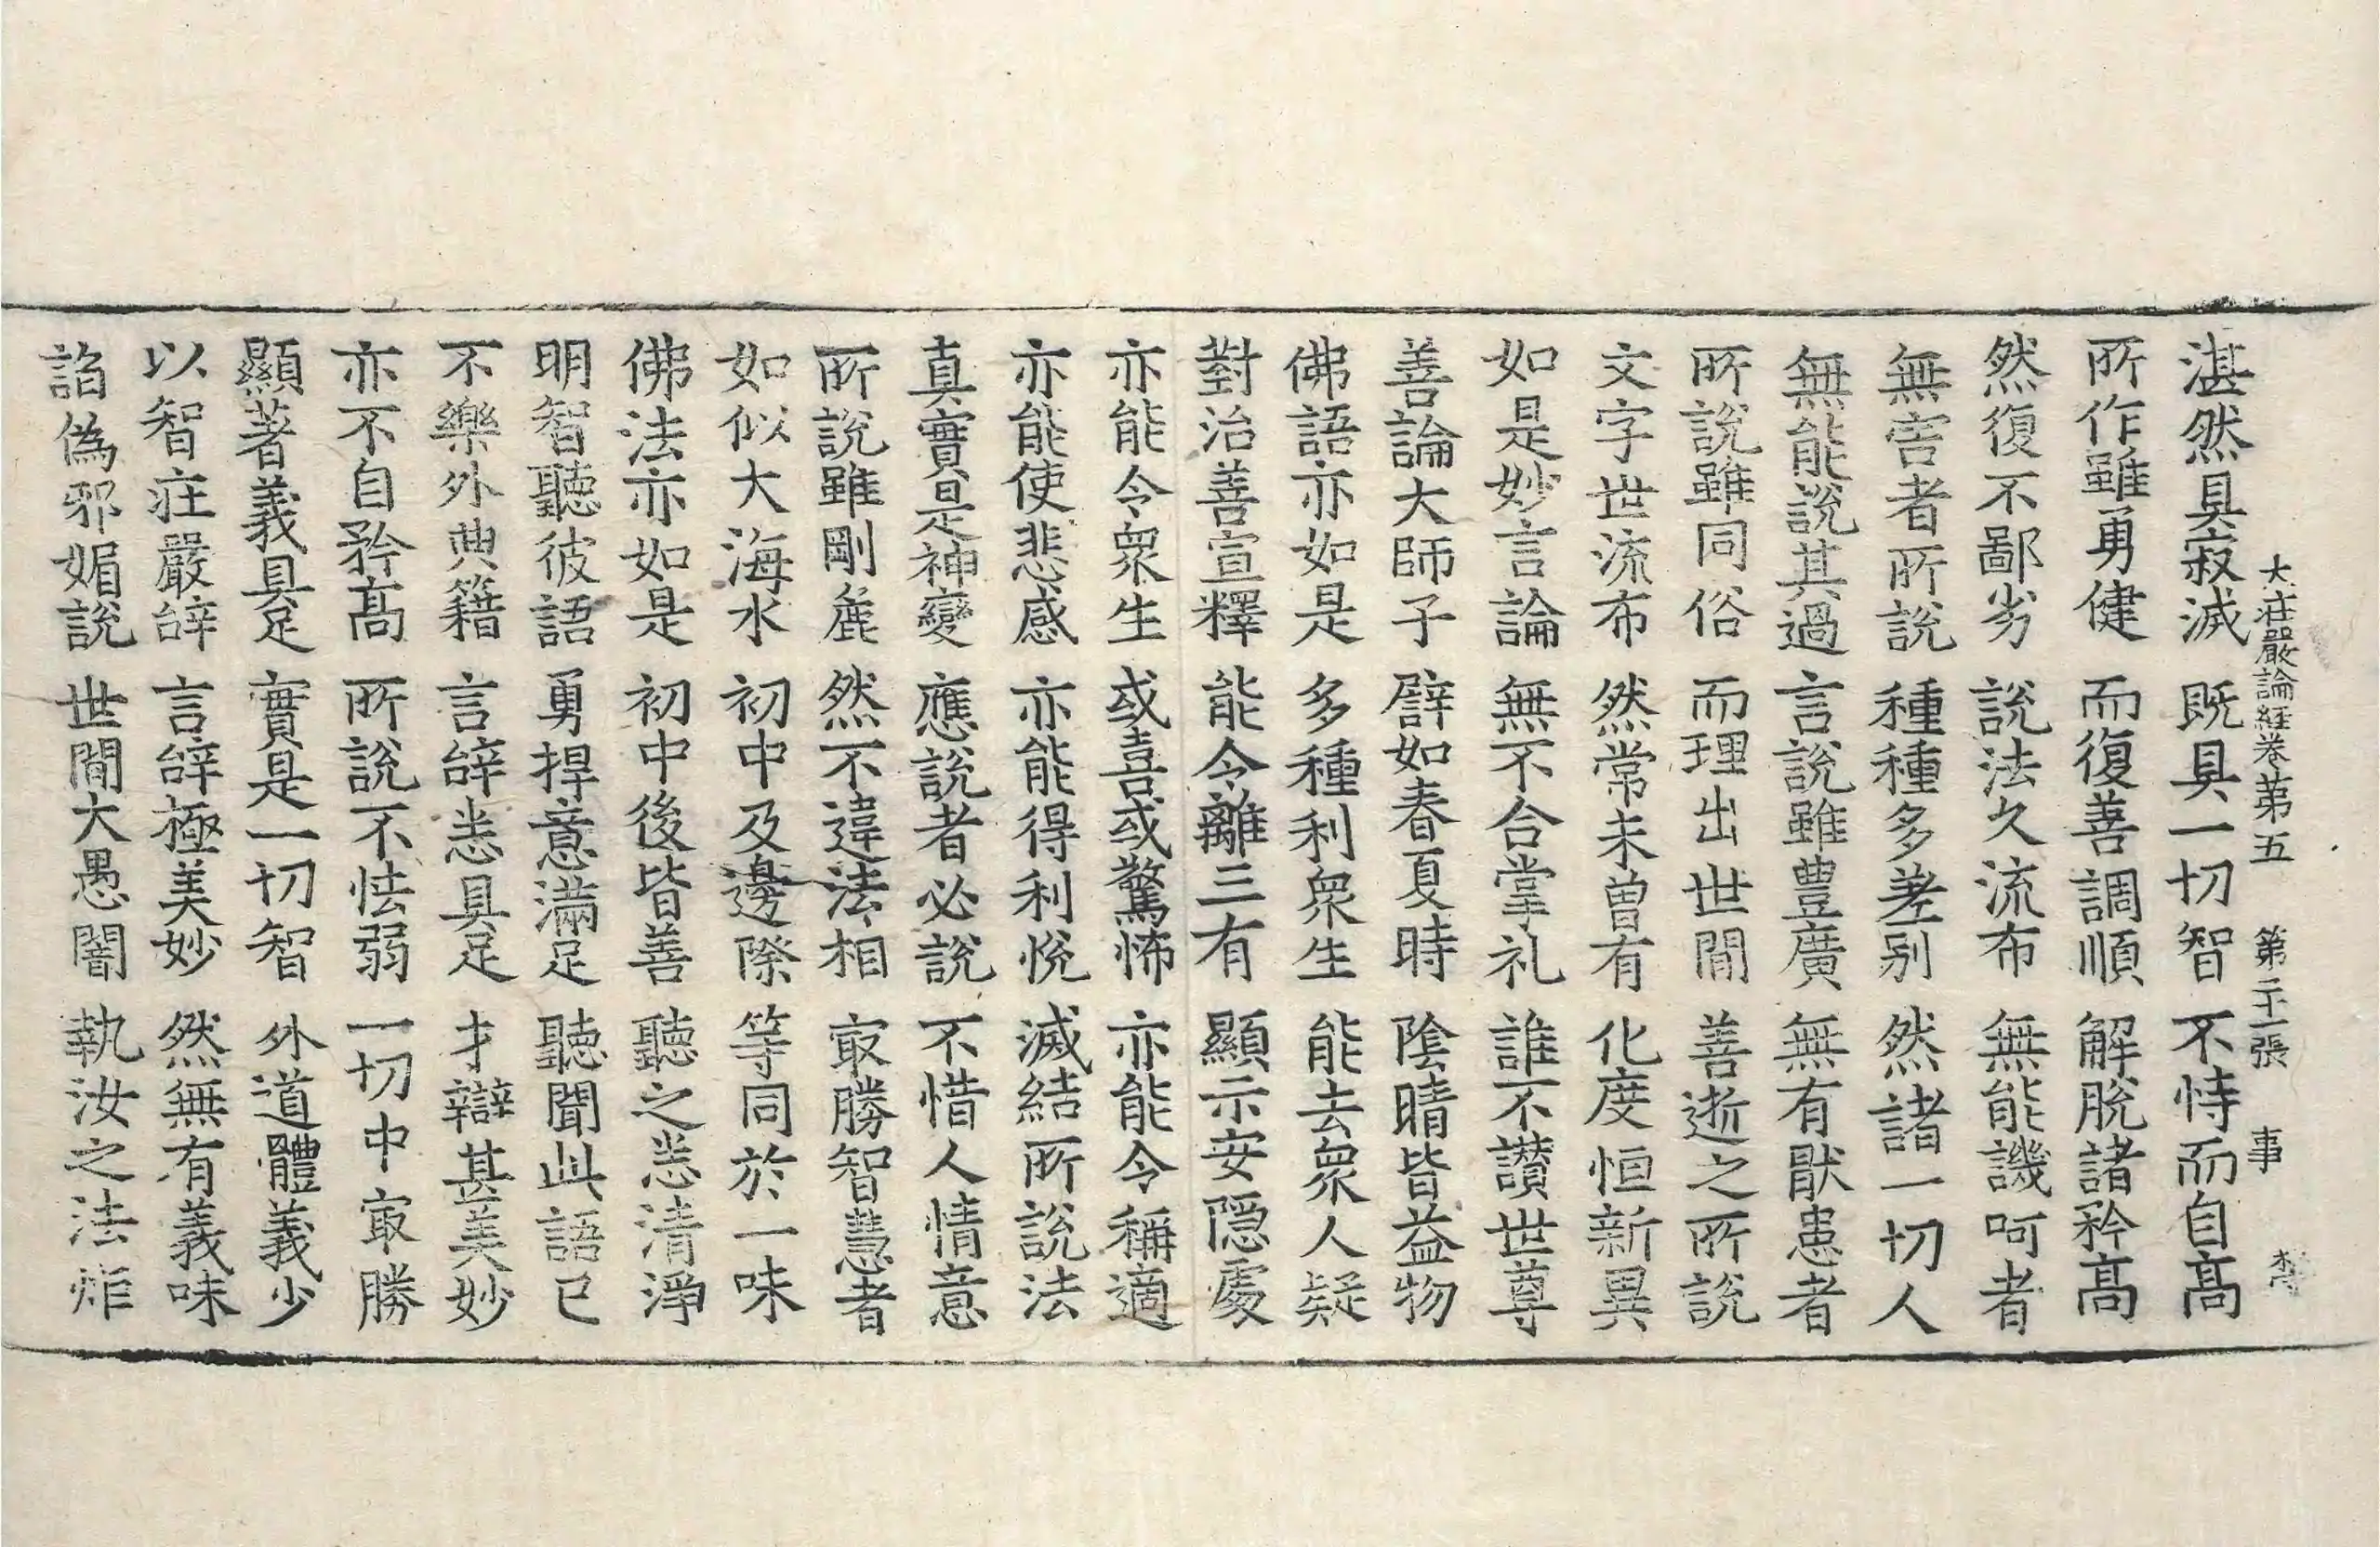 大莊嚴論経卷第五 第二十一張 事
湛然具寂滅 既具一切智 不恃而自髙
所作雖勇健 而復善調順 解脫諸矜髙
然復不鄙劣 說法久流布 無能譏呵者
無害者所說 種種多差别 然諸一切人
無能說其過 言說雖豊廣 無有猒患者
所說雖同俗 而理出世間 善逝之所說
文字世流布 然常未曽有 化度恒新異
如是妙言論 無不合掌礼 誰不讃世尊
善論大師子 譬如春夏時 陰晴皆益物
佛語亦如是 多種利衆生 能去衆人疑
對治善宣釋 能令離三有 顯示安隱處
亦能令衆生 或喜或驚怖 亦能令稱適
亦能使悲感 亦能得利悅 滅結所說法
真實是神變 應說者必說 不惜人情意
所說雖剛麁 然不違法相 㝡勝智慧者
如似大海水 初中及邊際 等同於一味
佛法亦如是 初中後皆善 聽之悉清淨
明智聽彼語 勇捍意滿足 聽聞此語已
不樂外典籍 言辝悉具足 才辯甚美妙
亦不自矜髙 所說不怯弱 一切中㝡勝
顯著義具足 實是一切智 外道體義少
以智莊嚴辝 言辝極美妙 然無有義味
諂偽邪媚說 世間大愚闇 執汝之法炬